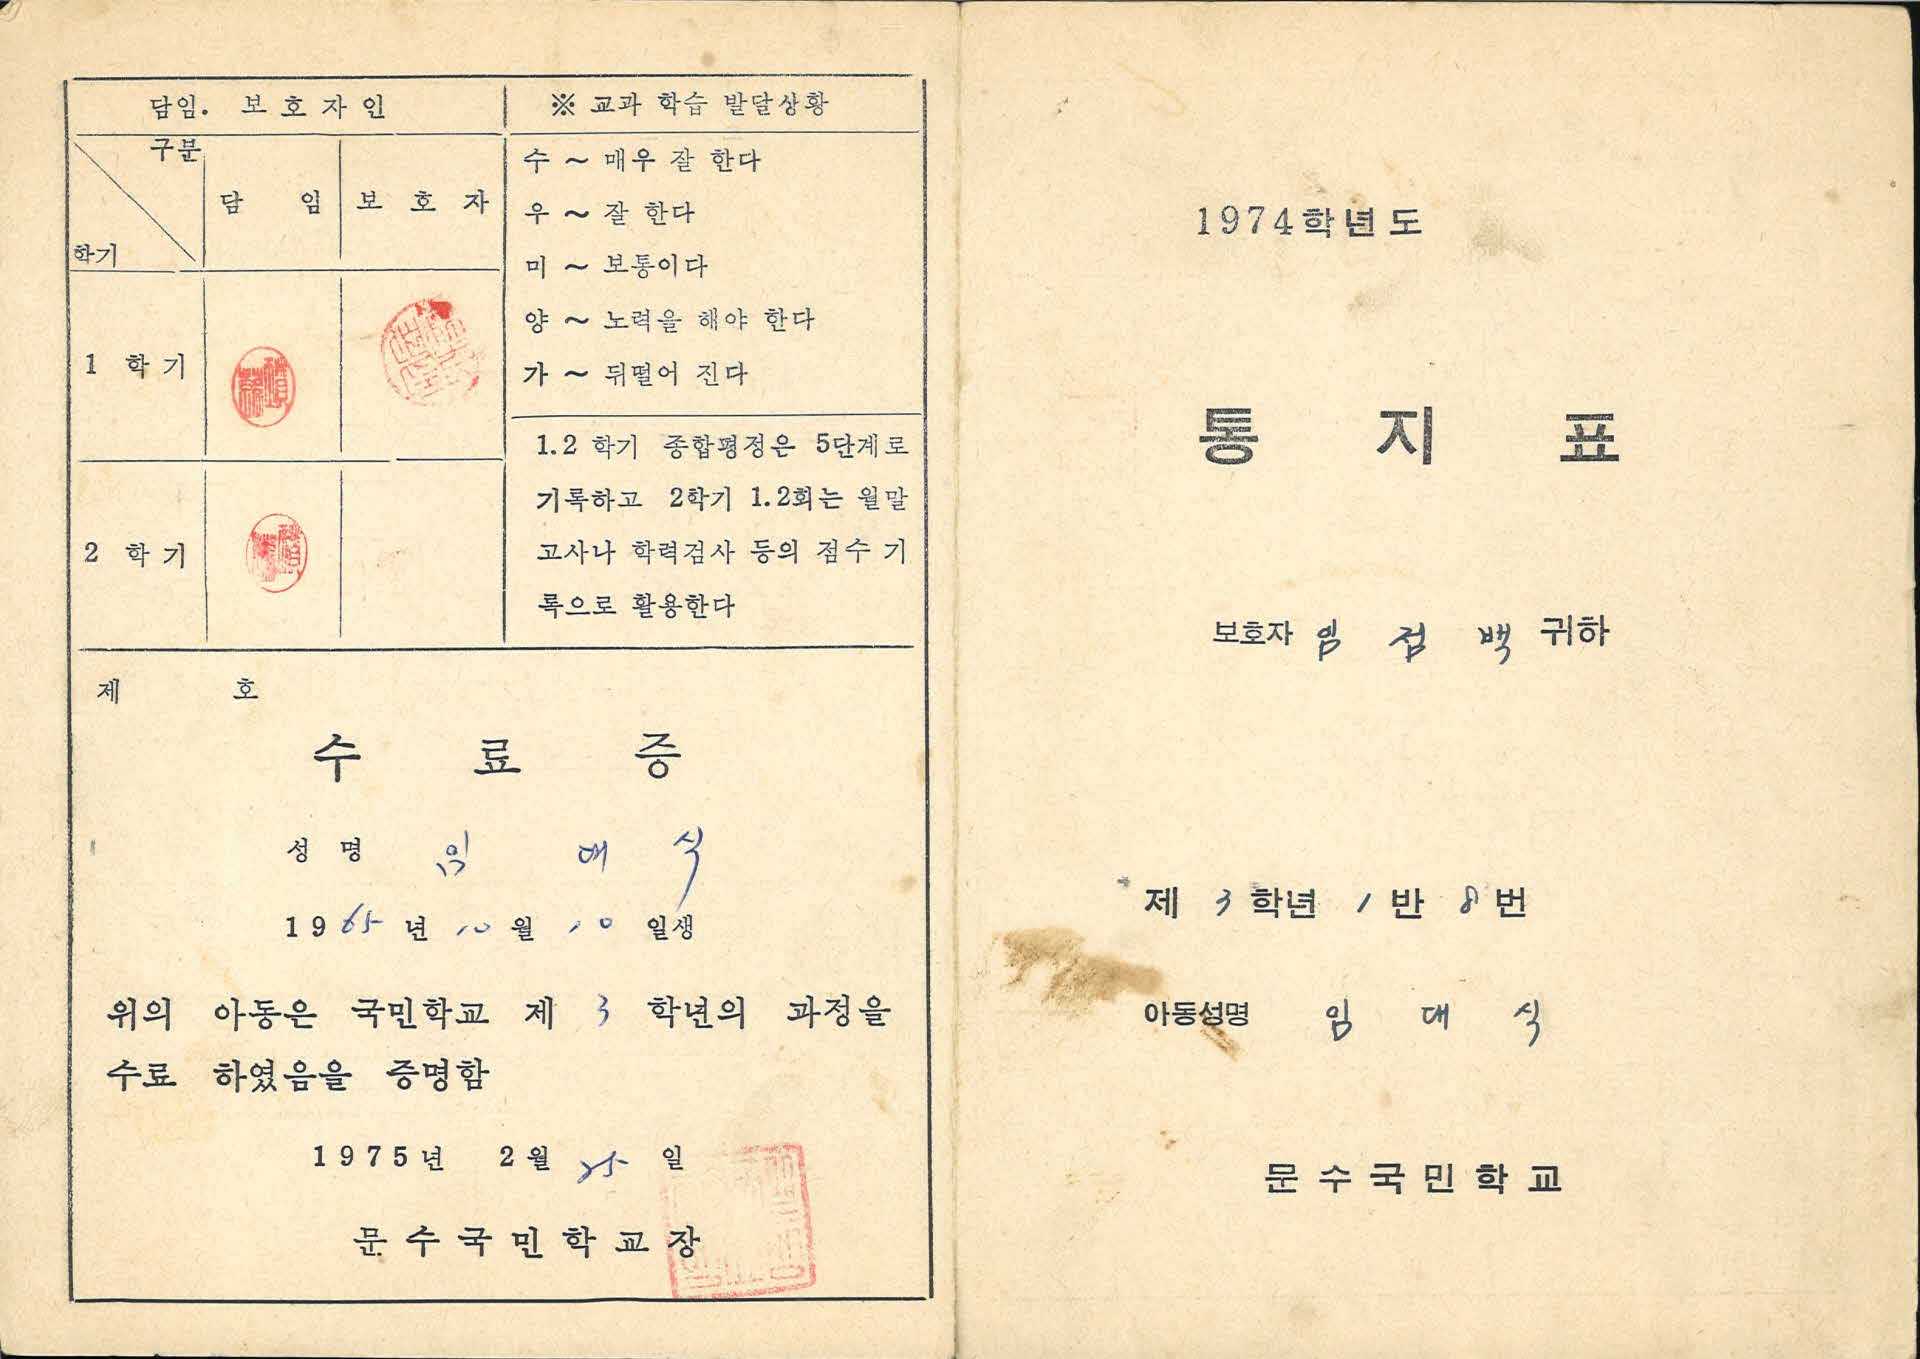 담임. 보호자인
구분
담 임
보 호 자
학기
1 학기
2 학기
※ 교과 학습 발달상황
수 ~ 매우 잘 한다
우 ~ 잘 한다
미 ~ 보통이다
양 ~ 노력을 해야 한다
가 ~ 뒤떨어 진다
1.2 학기 종합평정은 5단계로
기록하고 2학기 1.2회는 월말
고사나 학력검사 등의 점수 기
록으로 활용한다
제 호
수 료 증
성 명 임 대 식
1965년 10월 10일생
위의 아동은 국민학교 제 3 학년의 과정을
수료 하였음을 증명함
1975년 2월 25일
문수국민학교장
1974학년도
통 지 표
보호자 임 점 백 귀하
제 3학년 1반 8번
아동성명 임 대 식
문수국민학교